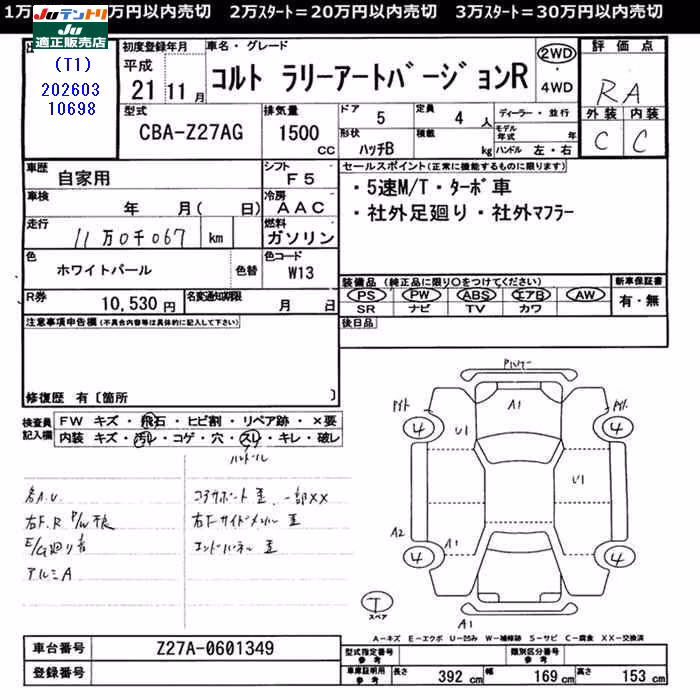 1万 万円以内売切 2万スタート＝20万円以内売切 3万スタート＝30万円以内売切
Juテントリ
Ju
適正販売店
(T1)
202603
10698
初度登録年月
平成
21 11月
車名・グレード
コルト ラリーアートバージョンR
2WD
・
4WD
評価点
RA
外装 内装
C C
型式
CBA-Z27AG
排気量
1500
CC
ドア
5
定員
4 人
ディーラー・並行
形状
ハッチB
積載
kg
モデル年式 年
ハンドル 左・右
車歴
自家用
シフト
F5
車検
年 月( 日)
冷房
AAC
走行
11万0千067 km
燃料
ガソリン
色
ホワイトパール
色替
色コード
W13
R券
10,530 円
名変通知期限
月 日
セールスポイント(正常に機能するものに限ります)
・5速M/T・ターボ車
・社外足廻り・社外マフラー
装備品 (純正品に限り○をつけてください)
PS PW ABS エアB AW
SR ナビ TV カワ
新車保証書
有・無
後日品
注意事項申告欄(不具合内容等は具体的に記入して下さい)
修復歴 有〔箇所 〕
検査員記入欄
FW キズ・飛石・ヒビ割・リペア跡・×要
内装 キズ・汚レ・コゲ・穴・スレ・キレ・破レ
ハンドル
各A.U.
コアサポート歪 一部XX
右F.R P/W不良
E/G廻り
エンドパネル歪
アルミA
A1
U1
U1
A2
A1
A1
4
4
4
4
T
スペア
A−キズ E−エクボ U−凹み W−補修跡 S−サビ C−腐食 XX−交換済
車台番号
Z27A-0601349
登録番号
型式指定番号
参考
類別区分番号
参考
車庫証明用
参考
長さ 392 cm
幅 169 cm
高さ 153 cm